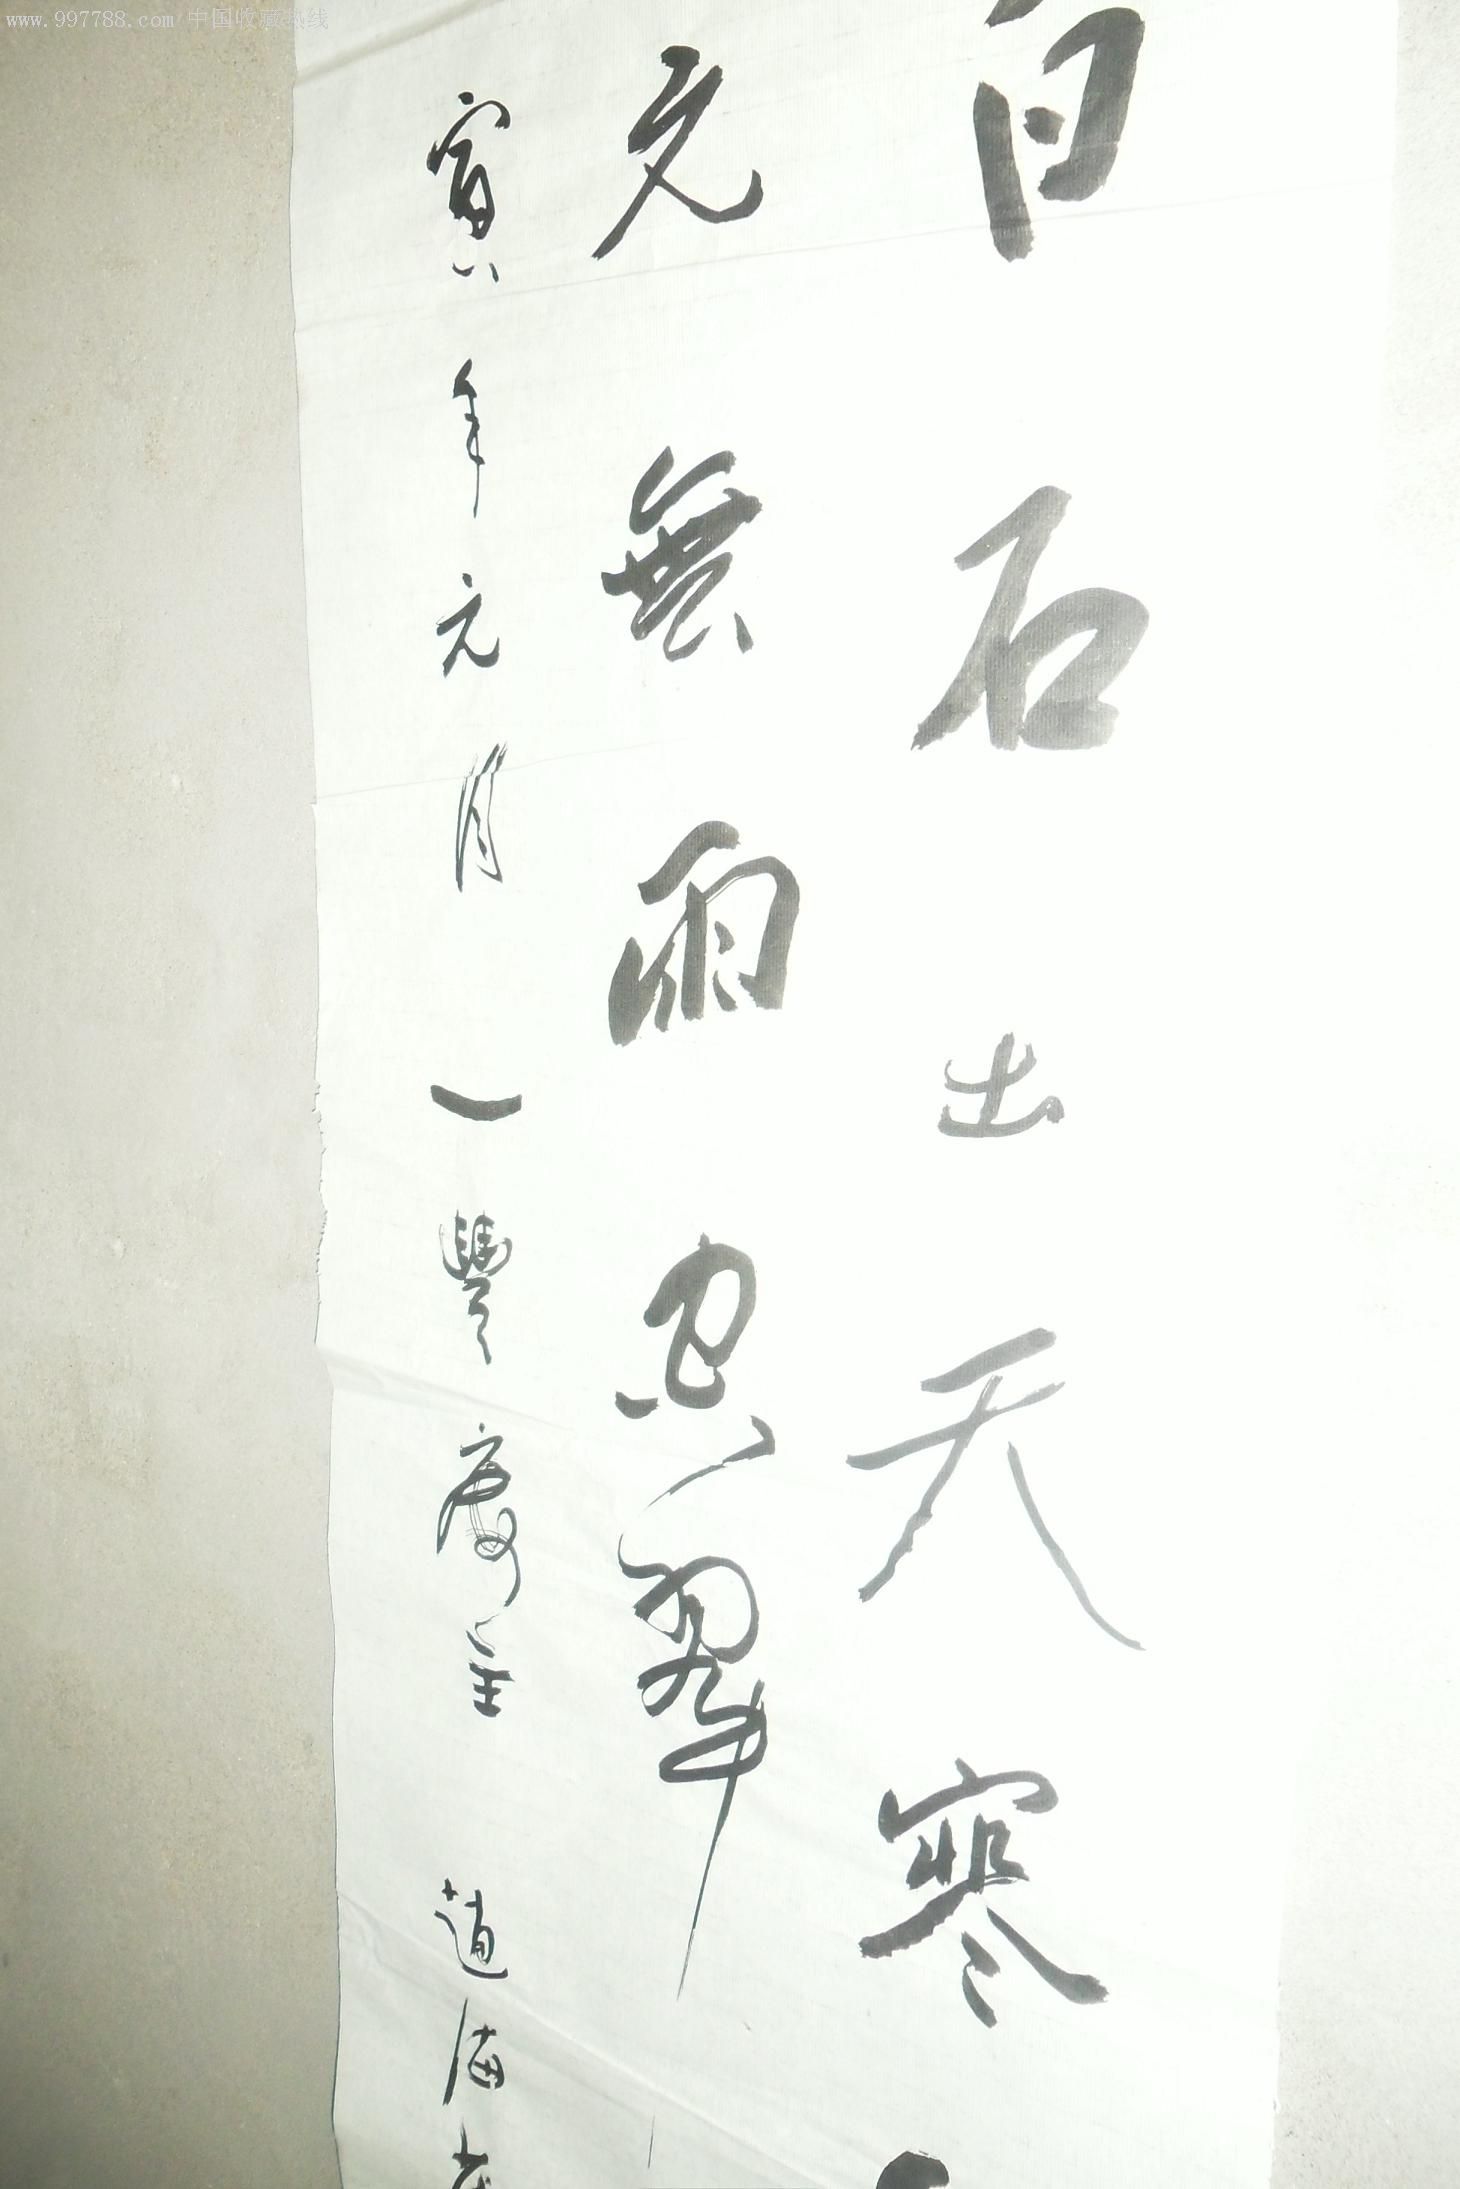 www.997788.com 中国收藏热线
白石出天寒
元無雨空翠
寅年元月一豐慶主趙海